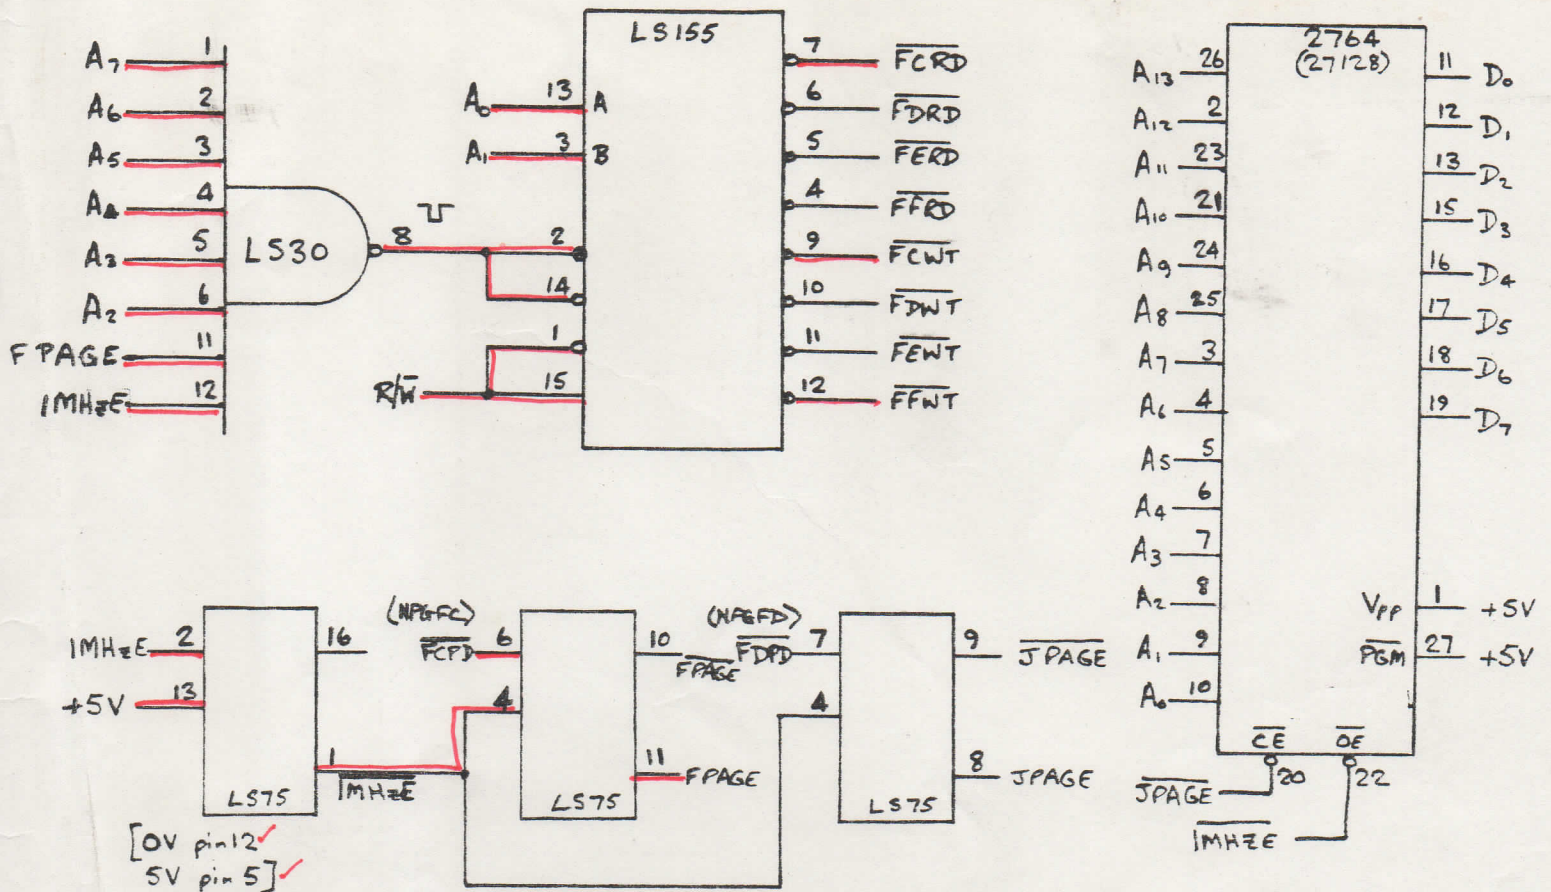 A7 1
A6 2
A5 3
A4 4
A3 5
A2 6
F PAGE 11
1MHzE 12
LS30
8
LS155
A0 13 A
A1 3 B
2
14
1
R/W̅ 15
7 F̅C̅R̅D̅
6 F̅D̅R̅D̅
5 F̅E̅R̅D̅
4 F̅F̅R̅D̅
9 F̅C̅W̅T̅
10 F̅D̅W̅T̅
11 F̅E̅W̅T̅
12 F̅F̅W̅T̅
2764
(27128)
A13 26
A12 2
A11 23
A10 21
A9 24
A8 25
A7 3
A6 4
A5 5
A4 6
A3 7
A2 8
A1 9
A0 10
11 D0
12 D1
13 D2
15 D3
16 D4
17 D5
18 D6
19 D7
Vpp 1 +5V
P̅G̅M̅ 27 +5V
C̅E̅ O̅E̅
J̅P̅A̅G̅E̅ 20 22
1̅M̅H̅Z̅E̅
1MHzE 2
+5V 13
16
1
1̅M̅H̅z̅E̅
LS75
[0V pin12 ✓
5V pin 5] ✓
(NPGFC)
F̅C̅P̅D̅ 6
4
10
F̅P̅A̅G̅E̅
11 FPAGE
LS75
(NPGFD)
F̅D̅P̅D̅ 7
4
9 J̅P̅A̅G̅E̅
8 JPAGE
LS75